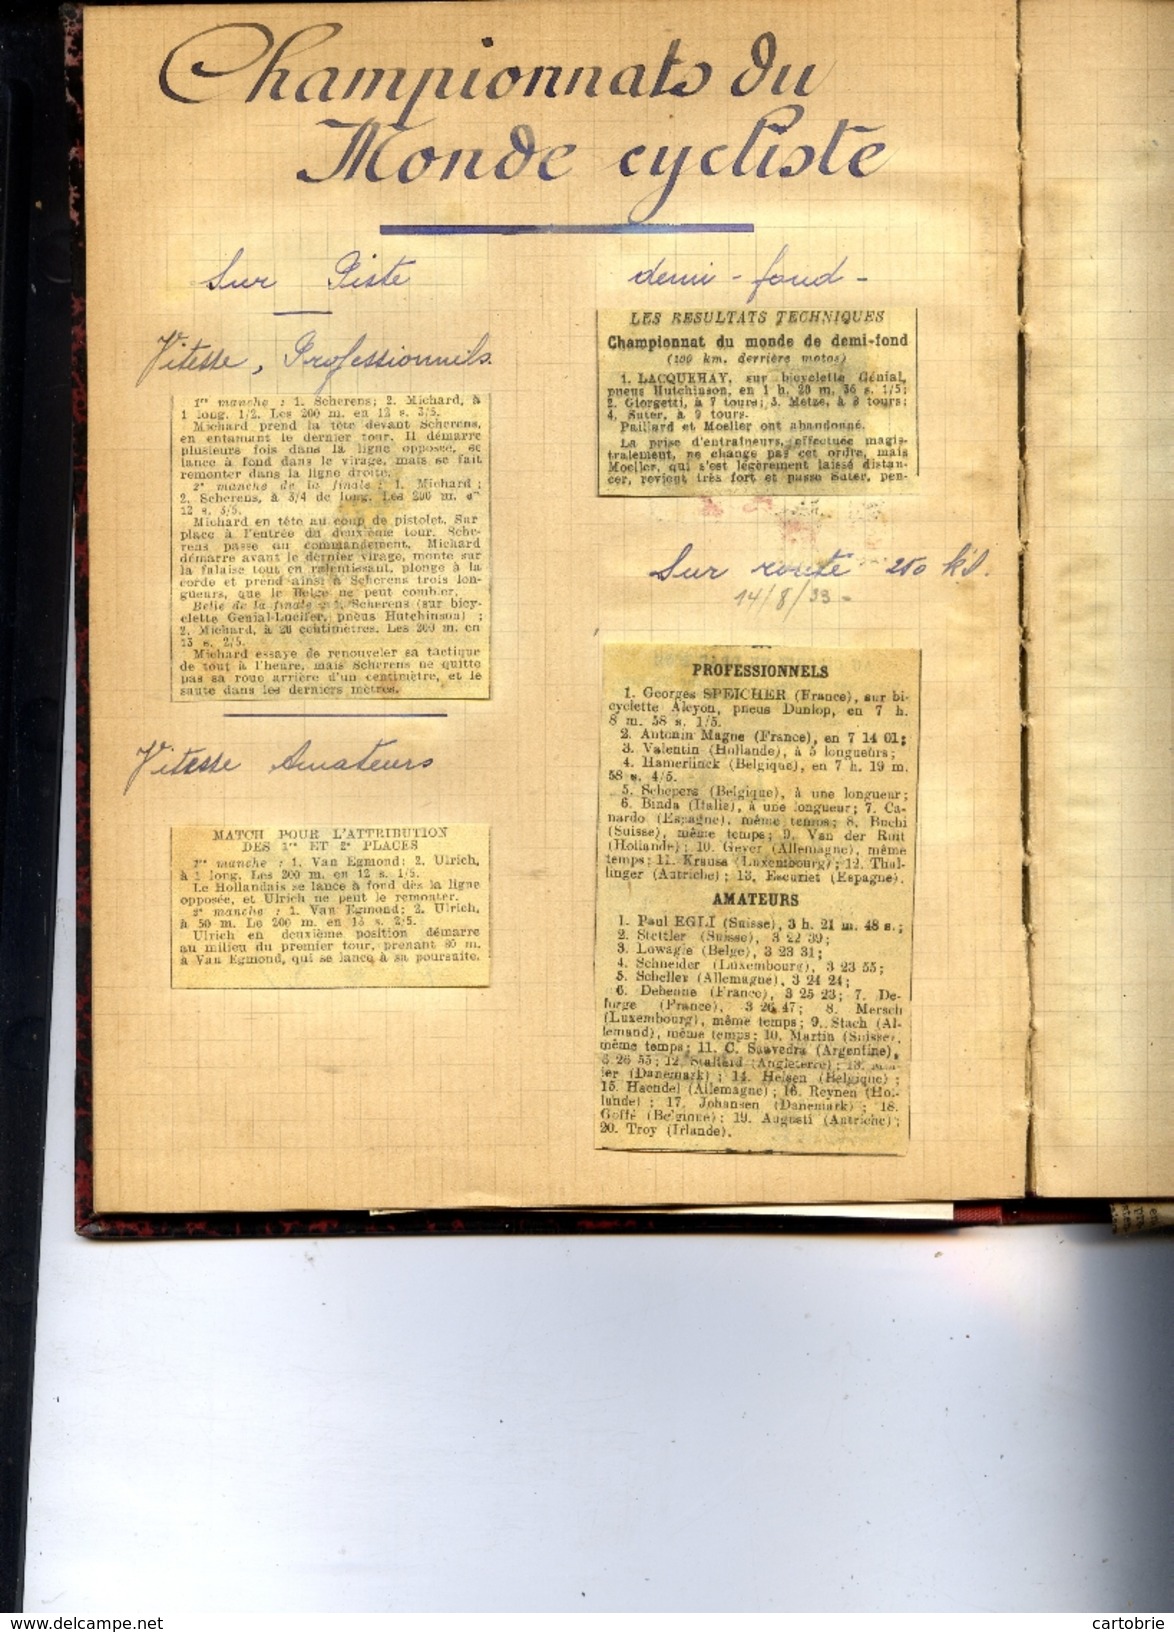 Championnats du
Monde cycliste
Sur Piste
Vitesse, Professionnels.
1re manche : 1. Scherens; 2. Michard, à
1 long. 1/2. Les 200 m. en 12 s. 3/5.
Michard prend la tête devant Scherens,
en entamant le dernier tour. Il démarre
plusieurs fois dans la ligne opposée, se
lance à fond dans le virage, mais se fait
remonter dans la ligne droite.
2e manche de la finale : 1. Michard ;
2. Scherens, à 3/4 de long. Les 200 m. en
12 s. 3/5.
Michard en tête au coup de pistolet. Sur
place à l'entrée du deuxième tour. Sche-
rens passe au commandement. Michard
démarre avant le dernier virage, monte sur
la falaise tout en ralentissant, plonge à la
corde et prend ainsi à Scherens trois lon-
gueurs, que le Belge ne peut combler.
Belle de la finale : 1. Scherens (sur bicy-
clette Génial-Lucifer, pneus Hutchinson) ;
2. Michard, à 20 centimètres. Les 200 m. en
13 s. 2/5.
Michard essaye de renouveler sa tactique
de tout à l'heure, mais Scherens ne quitte
pas sa roue arrière d'un centimètre, et le
saute dans les derniers mètres.
Vitesse Amateurs
MATCH POUR L'ATTRIBUTION
DES 1re ET 2e PLACES
1re manche : 1. Van Egmond; 2. Ulrich,
à 1 long. Les 200 m. en 12 s. 1/5.
Le Hollandais se lance à fond dès la ligne
opposée, et Ulrich ne peut le remonter.
2e manche : 1. Van Egmond; 2. Ulrich,
à 50 m. Le 200 m. en 13 s. 2/5.
Ulrich en deuxième position démarre
au milieu du premier tour, prenant 80 m.
à Van Egmond, qui se lance à sa poursuite.
demi-fond-
LES RESULTATS TECHNIQUES
Championnat du monde de demi-fond
(100 km. derrière motos)
1. LACQUEHAY, sur bicyclette Génial,
pneus Hutchinson, en 1 h. 20 m. 36 s. 1/5;
2. Giorgetti, à 7 tours; 3. Metze, à 8 tours;
4. Suter, à 9 tours.
Paillard et Moeller ont abandonné.
La prise d'entraîneurs, effectuée magis-
tralement, ne change pas cet ordre, mais
Moeller, qui s'est légèrement laissé distan-
cer, revient très fort et passe Suter, pen-
Sur route 250 ks.
14/8/33-
PROFESSIONNELS
1. Georges SPEICHER (France), sur bi-
cyclette Alcyon, pneus Dunlop, en 7 h.
8 m. 58 s. 1/5.
2. Antonin Magne (France), en 7 14 01;
3. Valentin (Hollande), à 5 longueurs;
4. Hamerlinck (Belgique), en 7 h. 19 m.
58 s. 4/5.
5. Schepers (Belgique), à une longueur;
6. Binda (Italie), à une longueur; 7. Ca-
nardo (Espagne), même temps; 8. Buchi
(Suisse), même temps; 9. Van der Ruit
(Hollande); 10. Geyer (Allemagne), même
temps; 11. Krauss (Luxembourg); 12. Thal-
linger (Autriche); 13. Escuriet (Espagne).
AMATEURS
1. Paul EGLI (Suisse), 3 h. 21 m. 48 s.;
2. Stettler (Suisse), 3 22 39;
3. Lowagie (Belge), 3 23 31;
4. Schneider (Luxembourg), 3 23 55;
5. Scheller (Allemagne), 3 24 24;
6. Debenne (France), 3 25 23; 7. De-
forge (France), 3 26 47; 8. Mersch
(Luxembourg), même temps; 9. Stach (Al-
lemand), même temps; 10. Martin (Suisse),
même temps; 11. C. Saavedra (Argentine),
3 26 55; 12. Stallard (Angleterre); 13.
ler (Danemark) ; 14. Helsen (Belgique) ;
15. Haendel (Allemagne) ; 16. Reynen (Hol-
lande) ; 17. Johansen (Danemark) ; 18.
Goffé (Belgique); 19. Augusti (Autriche);
20. Troy (Irlande).
www.delcampe.net
cartobrie